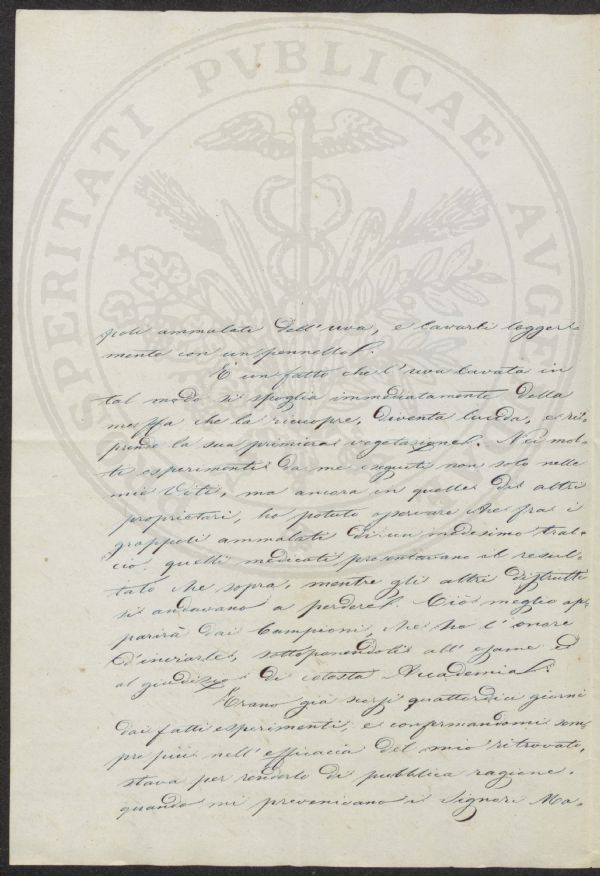 PROSPERITATI PVBLICAE AVG
poli ammalati dell'uva, e lavarli legger-
mente con un pennello.
È un fatto che l'uva lavata in
tal modo si spoglia immediatamente della
muffa che la ricuopre, diventa lucida, e ri-
prende la sua primiera vegetazione. Nei mol-
ti esperimenti da me eseguiti non solo nelle
mie Viti, ma ancora in quelle di altri
proprietari, ho potuto osservare che fra i
grappoli ammalati di un medesimo tral-
cio, quelli medicati presentavano il resul-
tato che sopra, mentre gli altri distrutti
si andavano a perdere. Ciò meglio ap-
parirà dai Campioni, che ho l'onore
d'inviarle, sottoponendoli all'esame ed
al giudizio di cotesta Accademia.
Erano già scorsi quattordici giorni
dai fatti esperimenti, e confermandomi sem-
pre più nell'efficacia del mio ritrovato,
stava per renderlo di pubblica ragione,
quando mi prevenivano i Signori Ma-